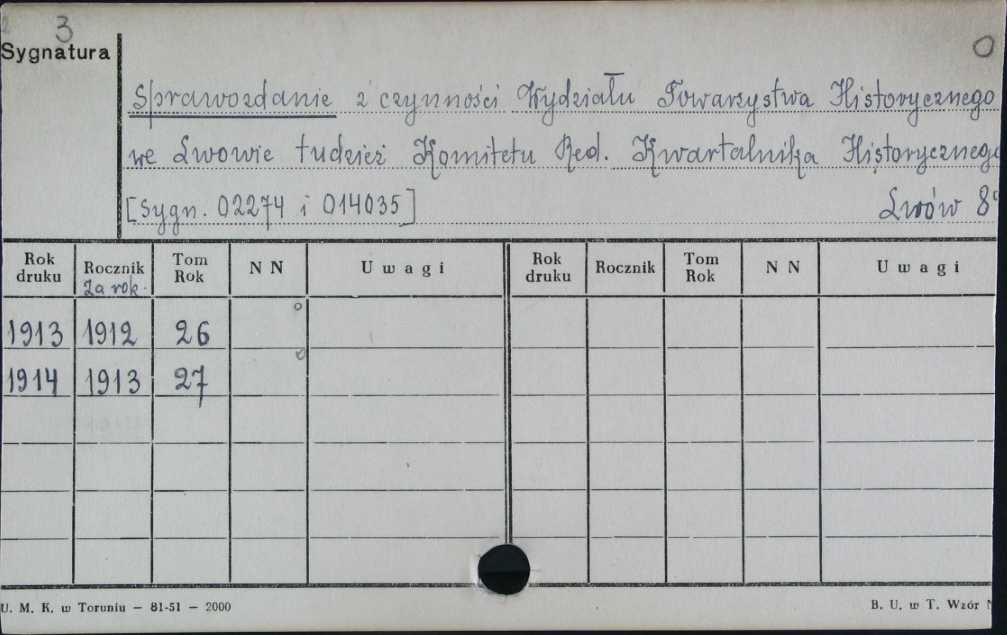 3
Sygnatura
O
Sprawozdanie z czynności Wydziału Towarzystwa Historycznego
we Lwowie tudzież Komitetu Red. Kwartalnika Historycznego
[Sygn. 02274 i 014035] Lwów 8°
Rok druku Rocznik Tom Rok N N Uwagi Rok druku Rocznik Tom Rok N N Uwagi
Za rok.
1913 1912 26
1914 1913 27
U. M. K. w Toruniu – 81-51 – 2000 B. U. w T. Wzór